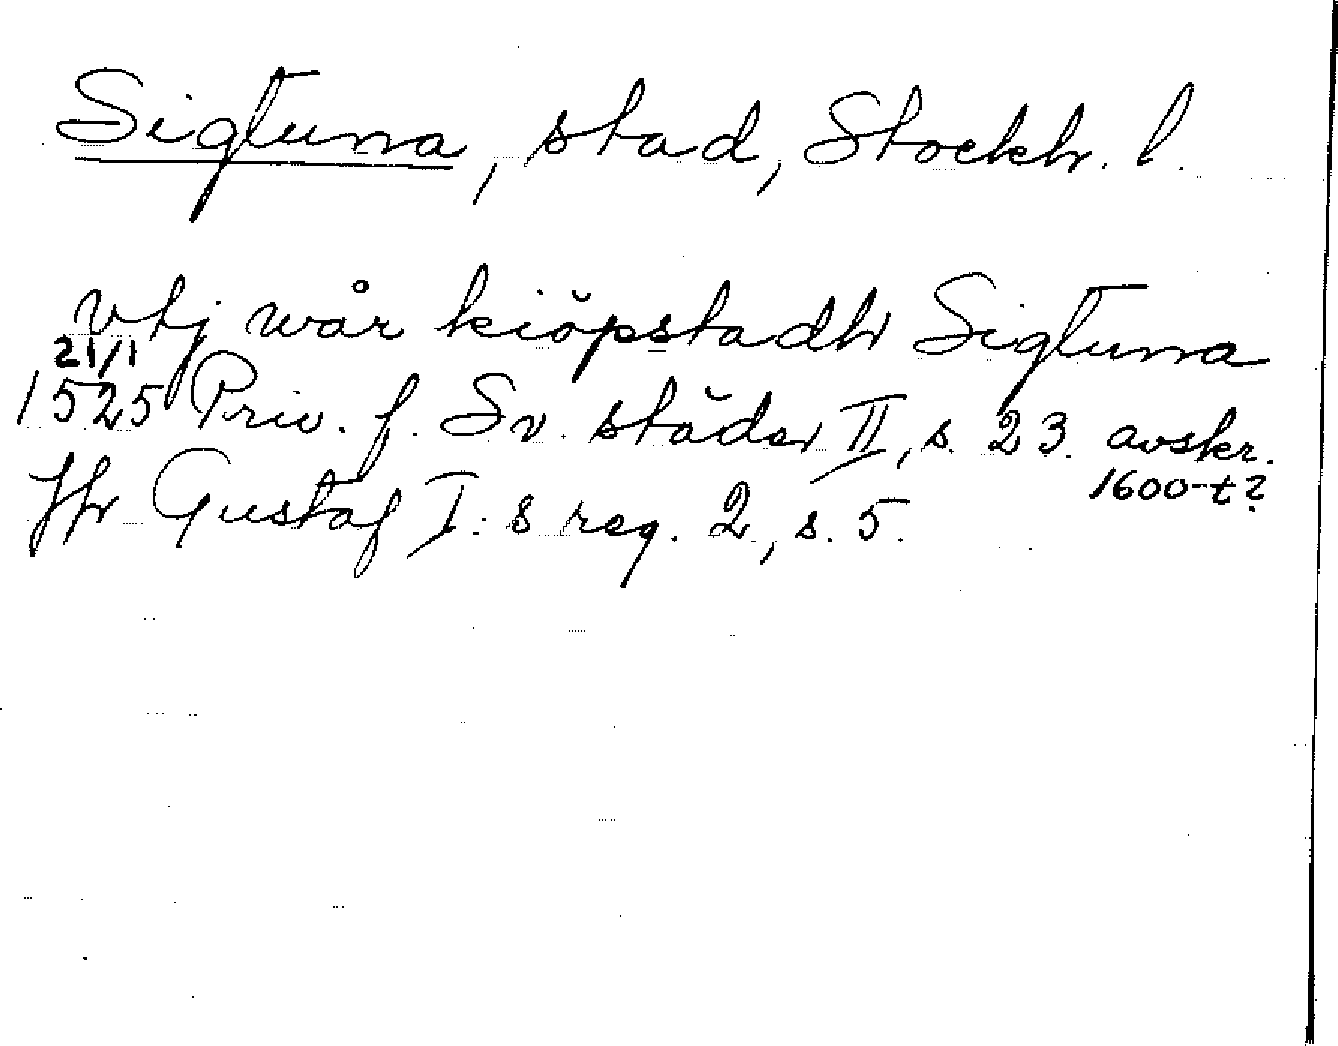 Sigtuna, stad, Stockh. l.
vtj wår kiöpstadh Sigtuna
21/1
1525 Priv. f. Sv. städer II, s. 23. avskr.
1600-t?
Jfr Gustaf I:s reg. 2, s. 5.